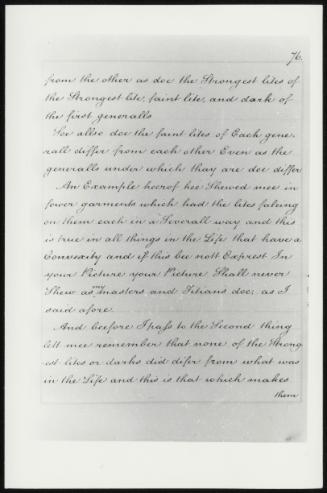 76.
from the other as doe the Strongest lites of
the Strongest lite, faint lite, and dark of
the first generalls
Soe allso doe the faint lites of Each gene-
rall differ from each other Even as the
generalls under which thay are doe differ
An Example heerof hee Shewed mee in
fower garments which had the lites faling
on them each in a Severall way and this
is true in all things in the Life that have a
Convexity and if this bee nott Exprest In
your Picture your Picture Shall never
Shew as my masters and Titians doe; as I
said afore.
And beefore I pass to the Second thing
lett mee remember that none of the Strong-
est lites or darks did difer from what was
in the Life and this is that which makes
them